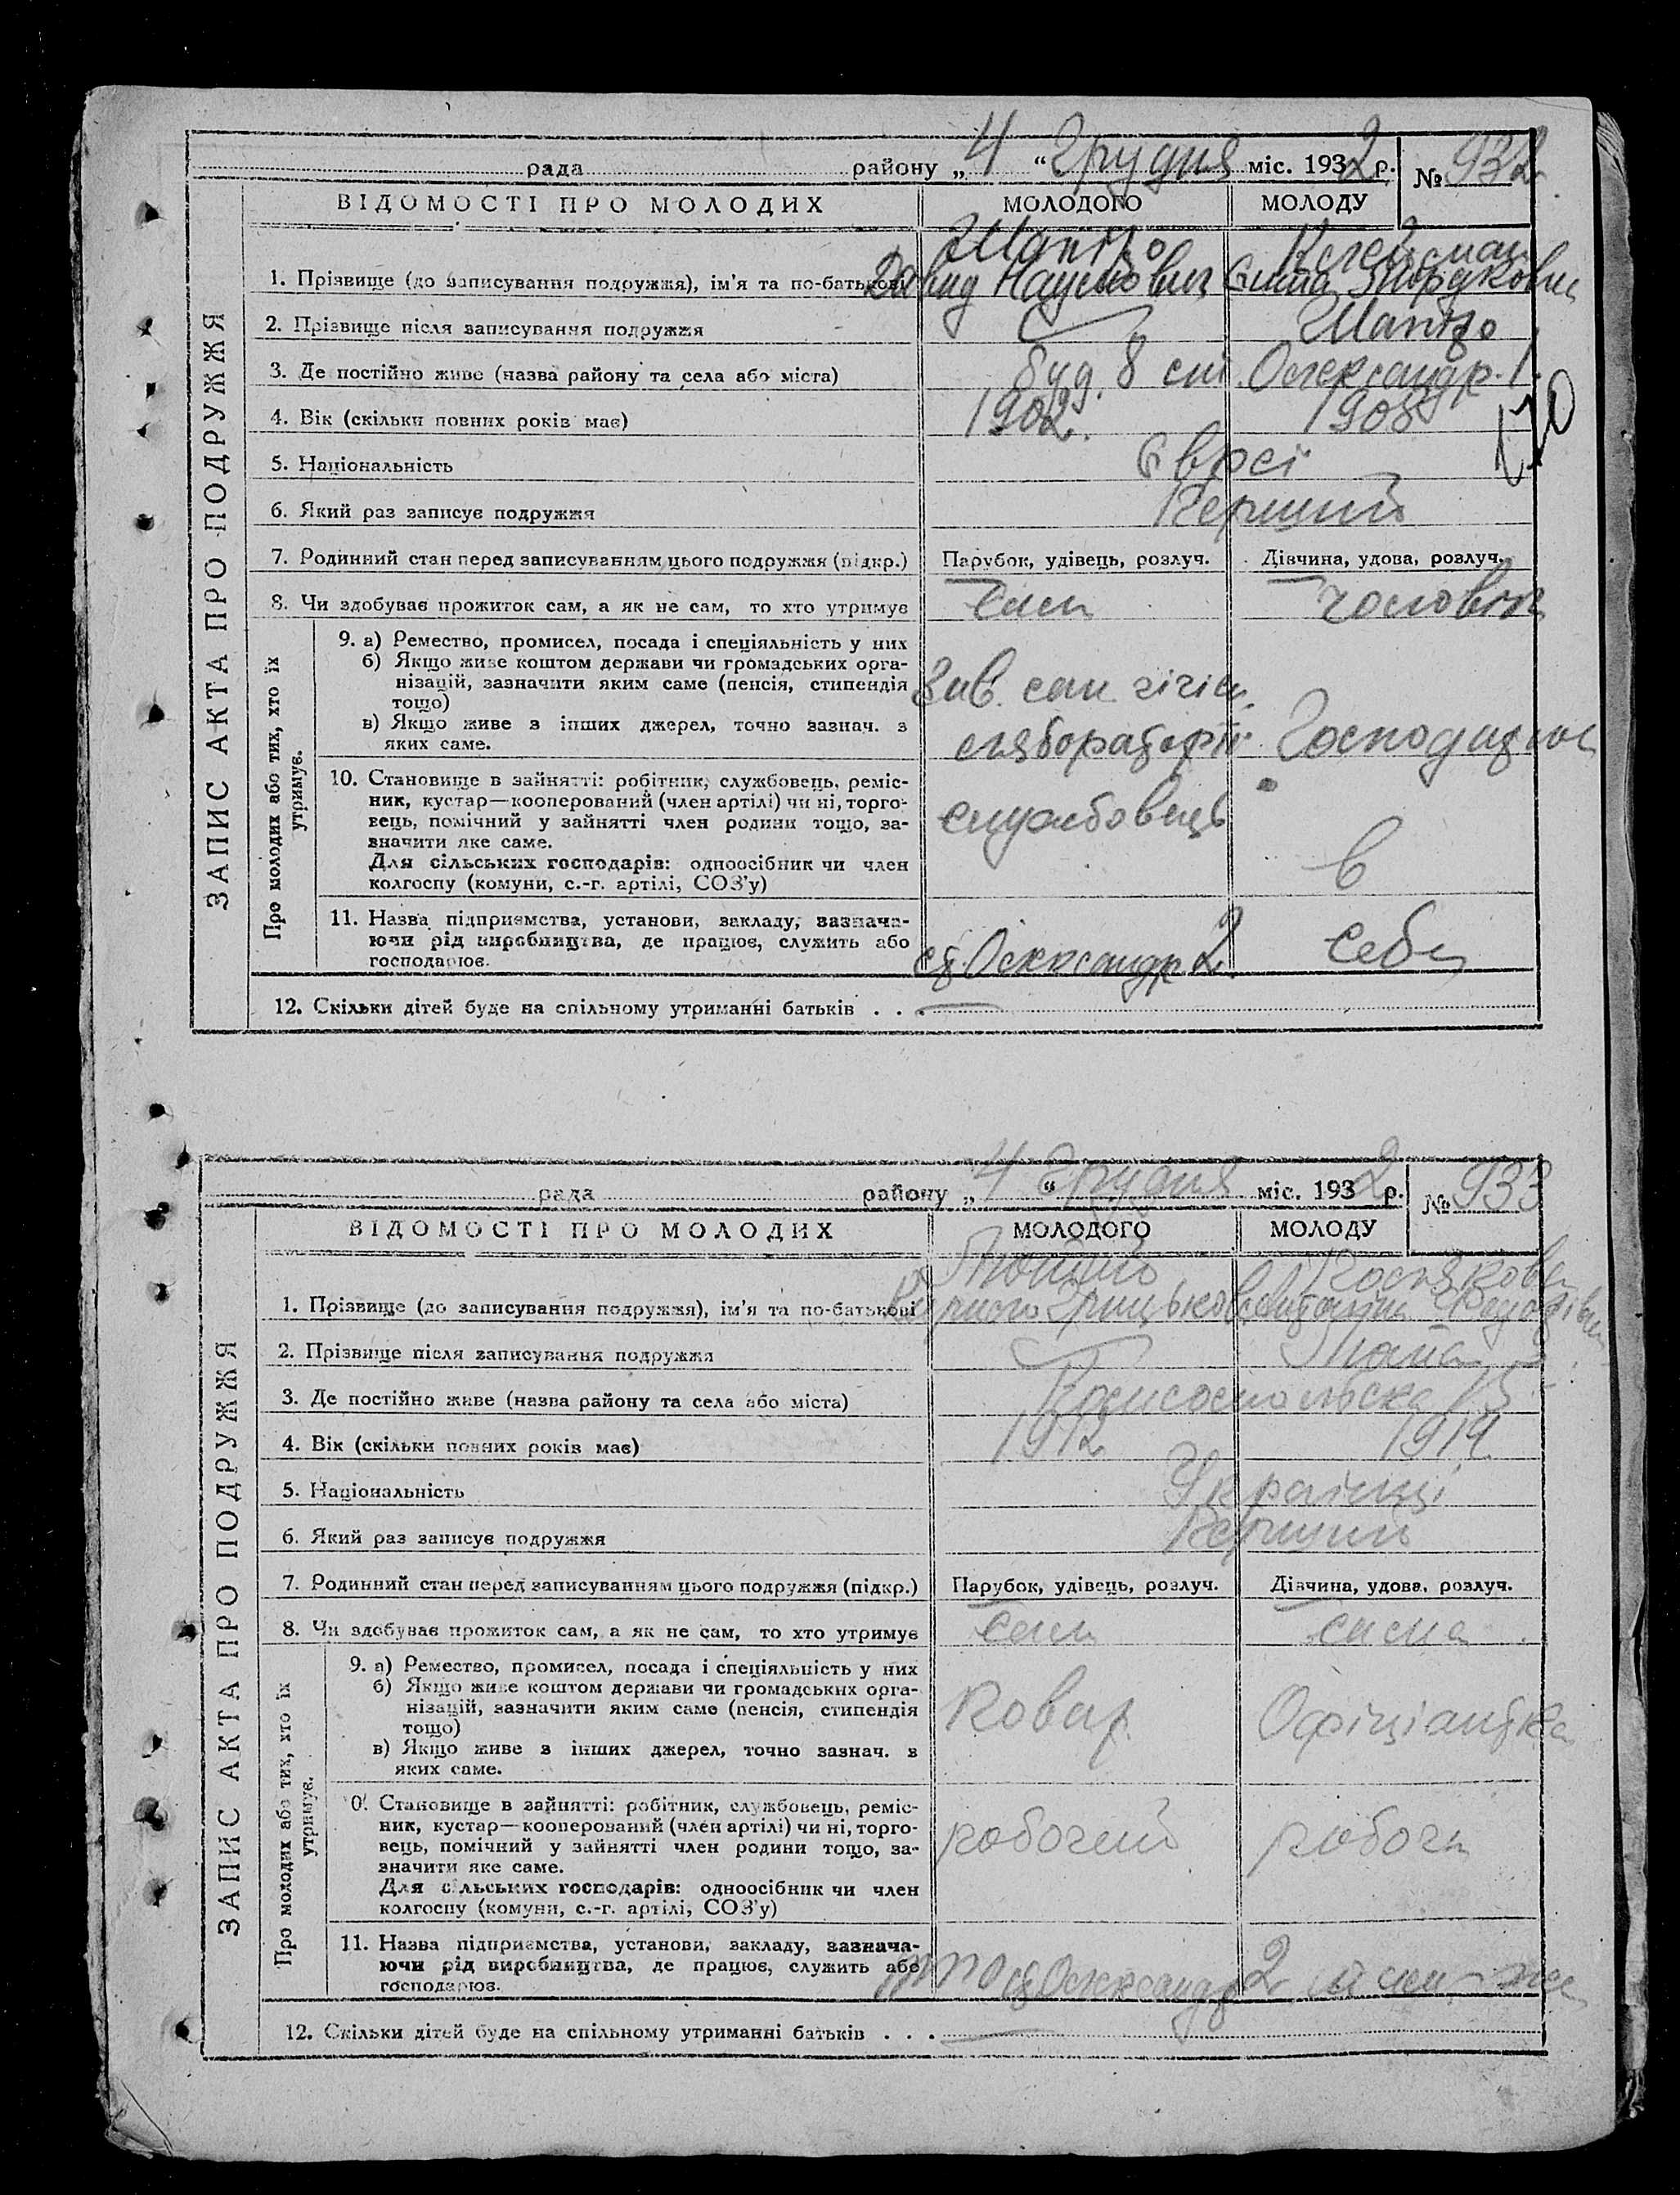 рада району „4“ Грудня міс. 1932 р. № 932
ВІДОМОСТІ ПРО МОЛОДИХ МОЛОДОГО МОЛОДУ
ЗАПИС АКТА ПРО ПОДРУЖЖЯ
1. Прізвище (до записування подружжя), ім'я та по-батькові
Давид Наумович
2. Прізвище після записування подружжя
3. Де постійно живе (назва району та села або міста) буд. 8 Олександр. 1
4. Вік (скільки повних років має) 1902. 1908
170
5. Національність Євреї
6. Який раз записує подружжя Перший
7. Родинний стан перед записуванням цього подружжя (підкр.) Парубок, удівець, розлуч. Дівчина, удова, розлуч.
8. Чи здобуває прожиток сам, а як не сам, то хто утримує Сам чоловік
Про молодих або тих, хто їх утримує.
9. а) Ремество, промисел, посада і спеціяльність у них
б) Якщо живе коштом держави чи громадських орга-
нізацій, зазначити яким саме (пенсія, стипендія
тощо)
в) Якщо живе з інших джерел, точно зазнач. з
яких саме.
Зав. сан. гігієн.
лябораторії
10. Становище в зайнятті: робітник, службовець, реміс-
ник, кустар—кооперований (член артілі) чи ні, торго-
вець, помічний у зайнятті член родини тощо, за-
значити яке саме.
Для сільських господарів: одноосібник чи член
колгоспу (комуни, с.-г. артілі, СОЗ'у)
службовець в
11. Назва підприємства, установи, закладу, зазнача-
ючи рід виробництва, де працює, служить або
господарює.
ст. Олександр 2 себе
12. Скільки дітей буде на спільному утриманні батьків . . .
рада району „4“ Грудня міс. 1932 р. № 933
ВІДОМОСТІ ПРО МОЛОДИХ МОЛОДОГО МОЛОДУ
ЗАПИС АКТА ПРО ПОДРУЖЖЯ
1. Прізвище (до записування подружжя), ім'я та по-батькові
2. Прізвище після записування подружжя
3. Де постійно живе (назва району та села або міста)
4. Вік (скільки повних років має) 1912 1914
5. Національність Українці
6. Який раз записує подружжя Перший
7. Родинний стан перед записуванням цього подружжя (підкр.) Парубок, удівець, розлуч. Дівчина, удова, розлуч.
8. Чи здобуває прожиток сам, а як не сам, то хто утримує Сам сама
Про молодих або тих, хто їх утримує.
9. а) Ремество, промисел, посада і спеціяльність у них
б) Якщо живе коштом держави чи громадських орга-
нізацій, зазначити яким саме (пенсія, стипендія
тощо)
в) Якщо живе з інших джерел, точно зазнач. з
яких саме.
Ковар Офіціантка
10. Становище в зайнятті: робітник, службовець, реміс-
ник, кустар—кооперований (член артілі) чи ні, торго-
вець, помічний у зайнятті член родини тощо, за-
значити яке саме.
Для сільських господарів: одноосібник чи член
колгоспу (комуни, с.-г. артілі, СОЗ'у)
робочий робоча
11. Назва підприємства, установи, закладу, зазнача-
ючи рід виробництва, де працює, служить або
господарює.
ст Олександр 2
12. Скільки дітей буде на спільному утриманні батьків . . .